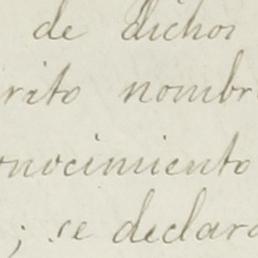 de dichos
rito nombr
onocimiento
; se declara